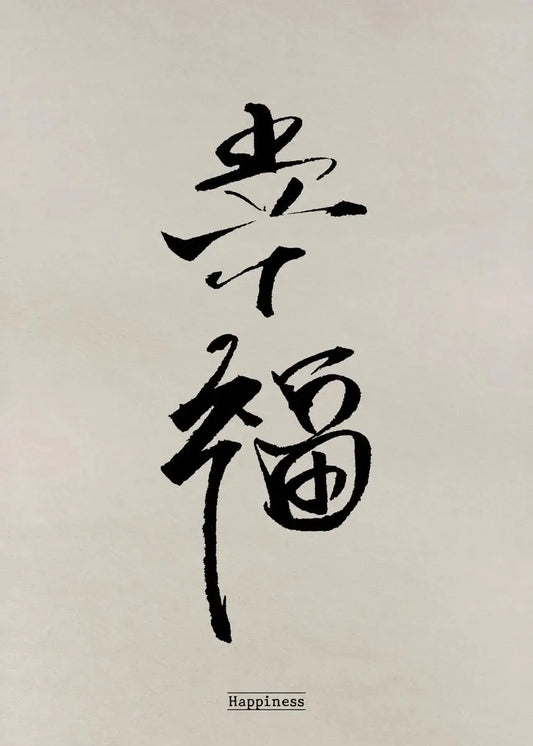 幸
福
Happiness